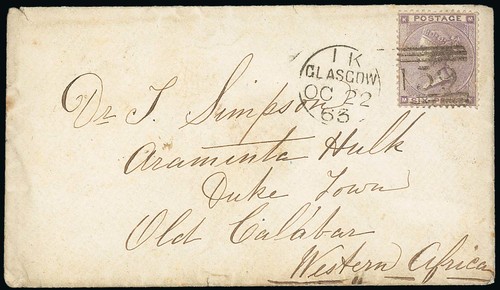 POSTAGE
1 K
GLASGOW
OC 22
63
159
Dr J. Simpson
Aramenta Hulk
Duke Town
Old Calabar
Western Africa